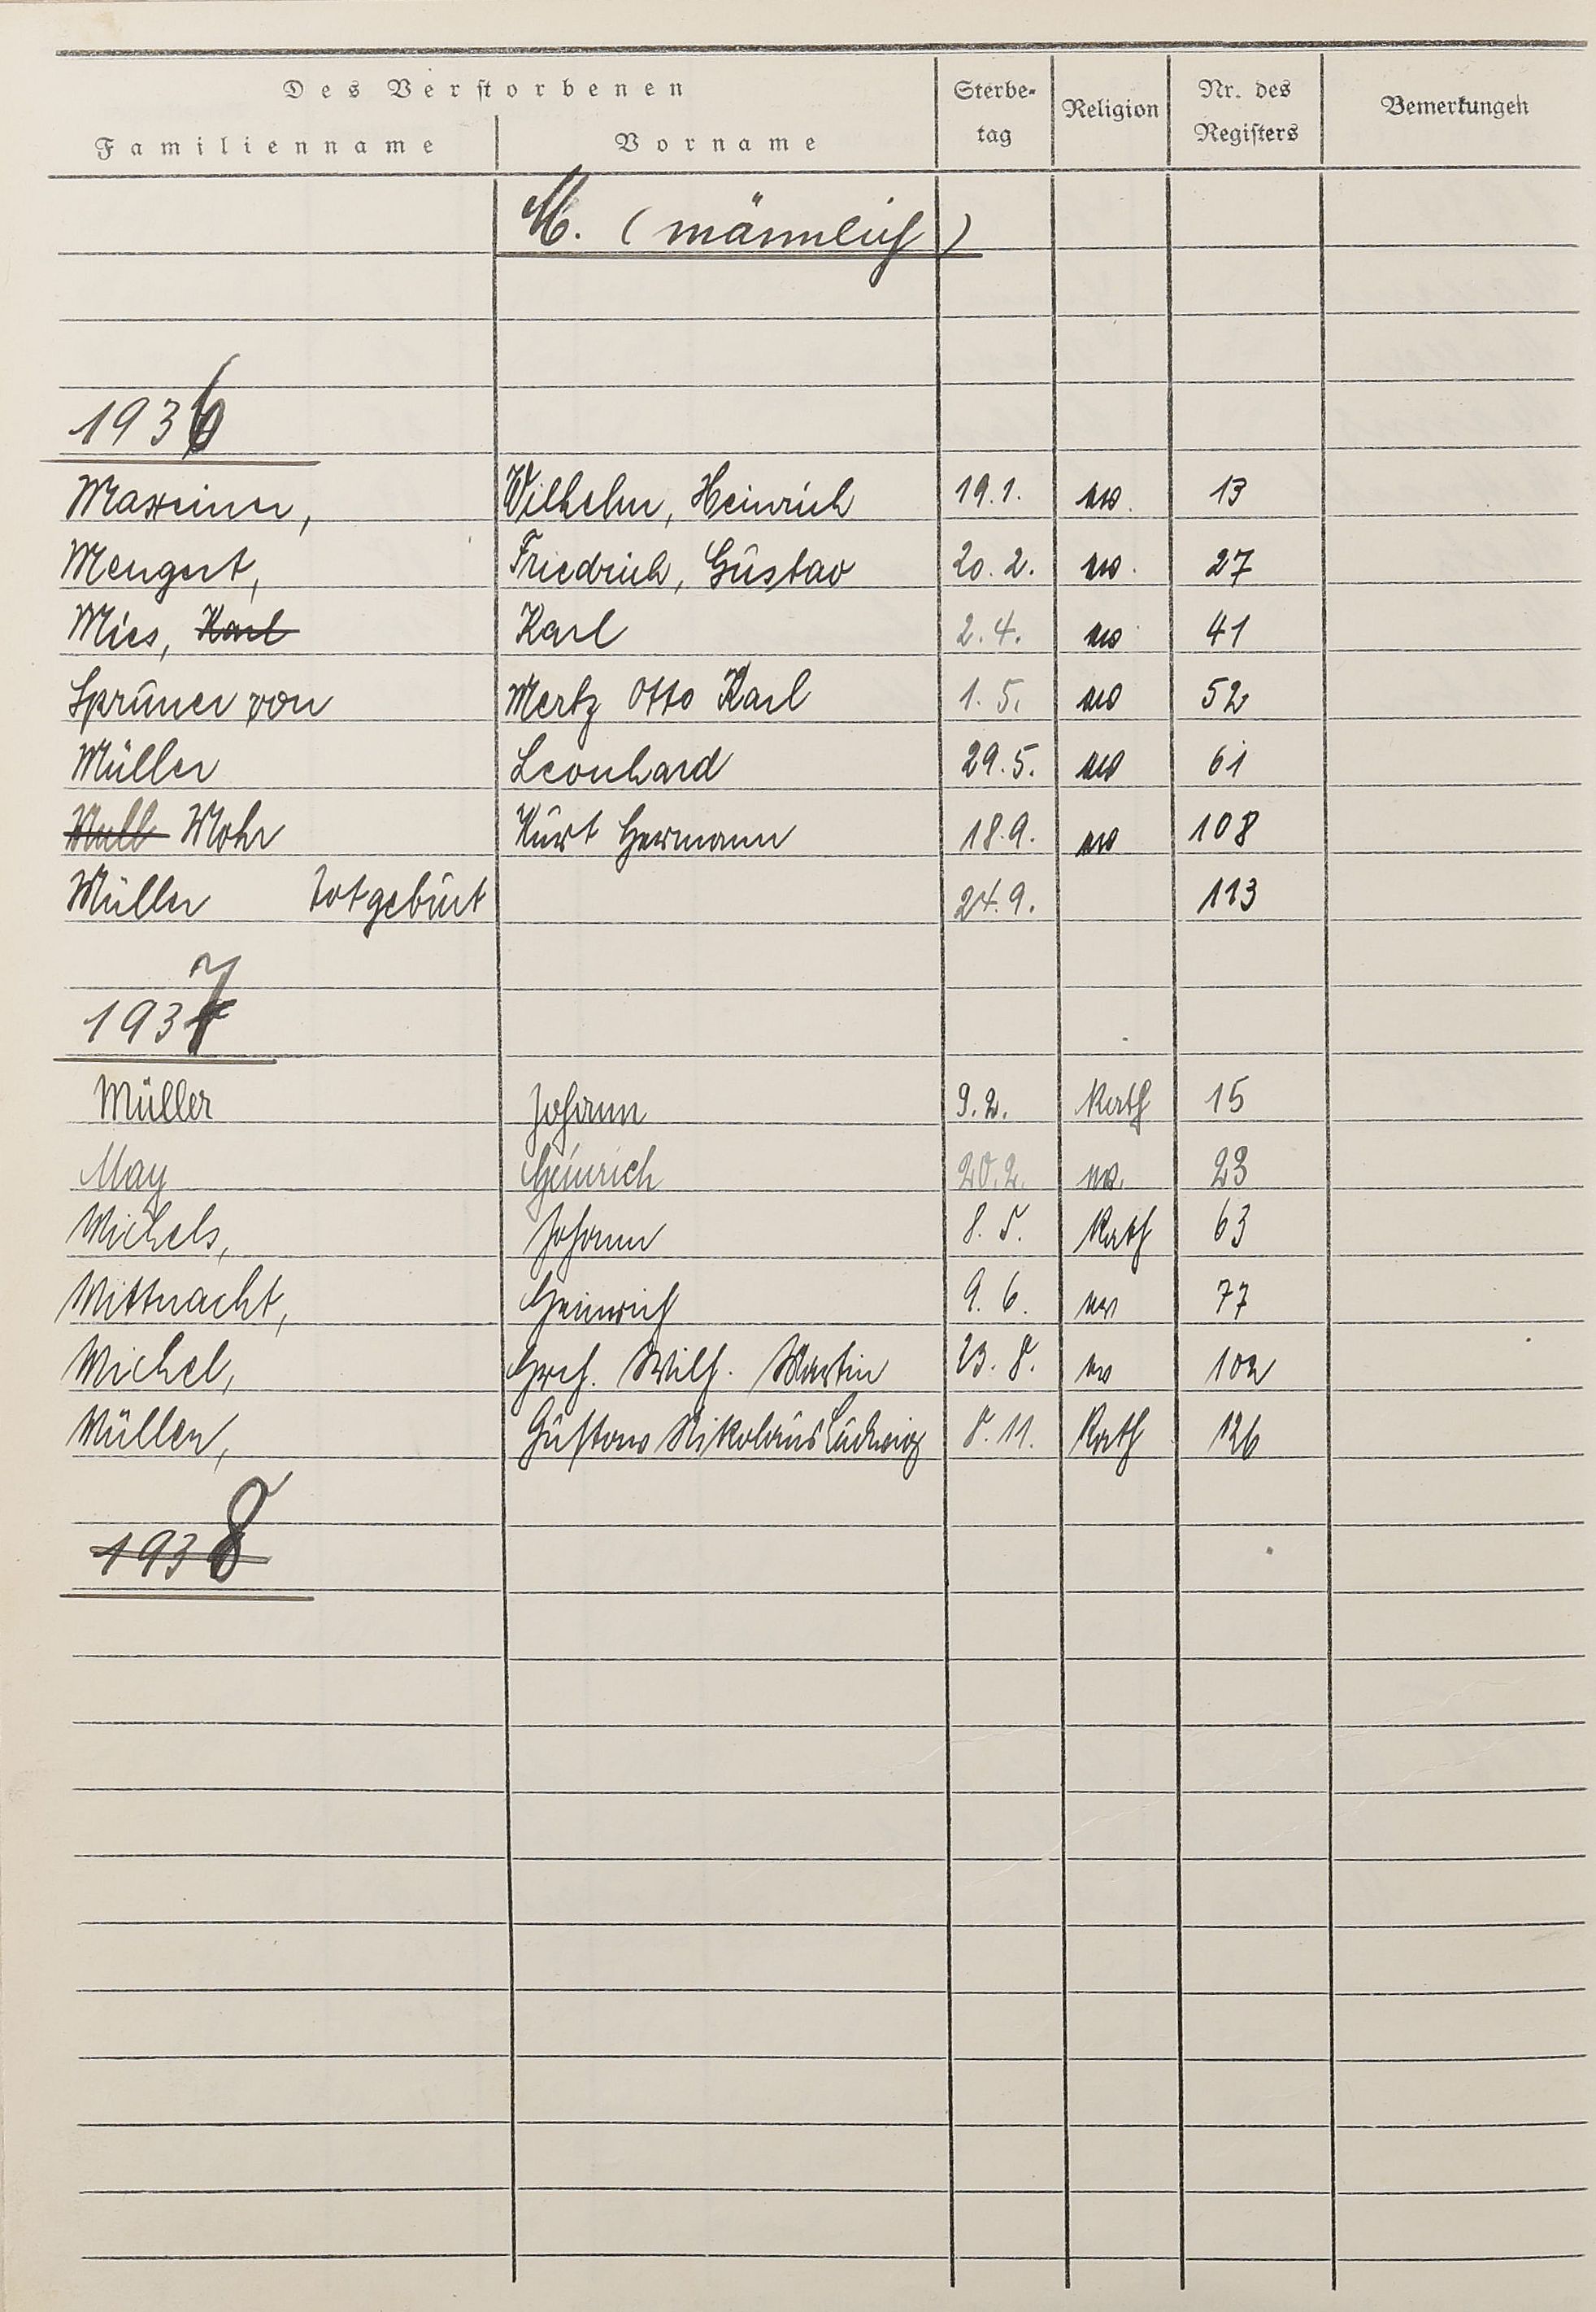 Des Verstorbenen
Familienname Vorname Sterbe-tag Religion Nr. des Registers Bemerkungen
M. (männlich)
1936
Maxeiner, Wilhelm, Heinrich 19.1. ev. 13
Mengert, Friedrich, Gustav 20.2. ev. 27
Mies, Karl Karl 2.4. ev. 41
Spruner von Mertz Otto Karl 1.5. ev 52
Müller Leonhard 29.5. ev 61
Mohr Kurt Hermann 18.9. ev 108
Müller Totgeburt 24.9. 113
1937
Müller Johann 9.2. Kath 15
May Heinrich 20.2. ev. 23
Michels, Johann 8.5. Kath 63
Mittnacht, Heinrich 9.6. ev 77
Michel, Hrch. Wilh. Martin 23.8. ev 102
Müller, Gustav Nikolaus Ludwig 8.11. Kath 126
1938